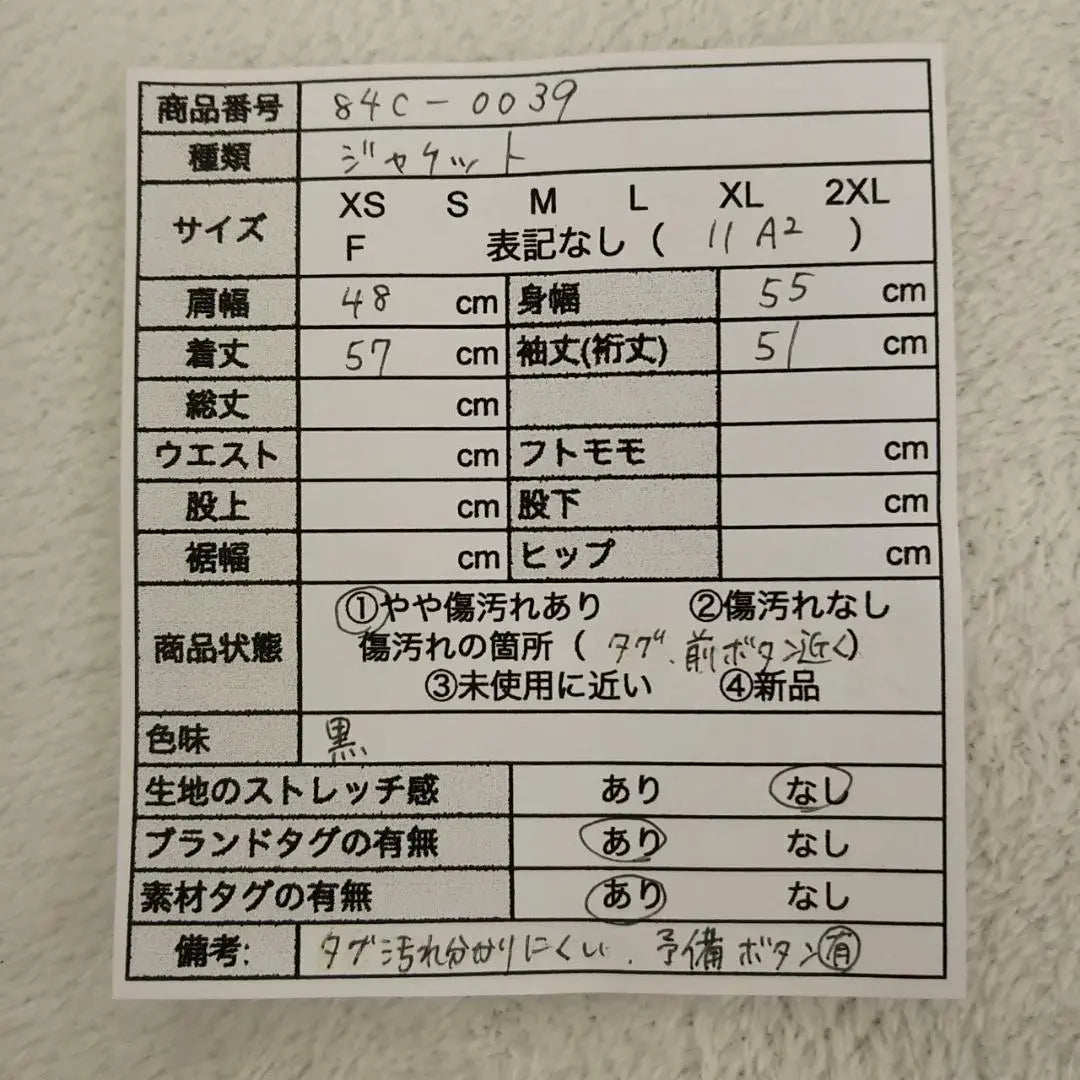 商品番号 84C-0039
種類 ジャケット
サイズ XS S M L XL 2XL
F 表記なし ( 11 A2 )
肩幅 48 cm 身幅 55 cm
着丈 57 cm 袖丈(裄丈) 51 cm
総丈 cm
ウエスト cm フトモモ cm
股上 cm 股下 cm
裾幅 cm ヒップ cm
商品状態 ①やや傷汚れあり ②傷汚れなし
傷汚れの箇所 ( タグ、前ボタン近く)
③未使用に近い ④新品
色味 黒
生地のストレッチ感 あり なし
ブランドタグの有無 あり なし
素材タグの有無 あり なし
備考: タグ汚れ分かりにくい、予備ボタン有